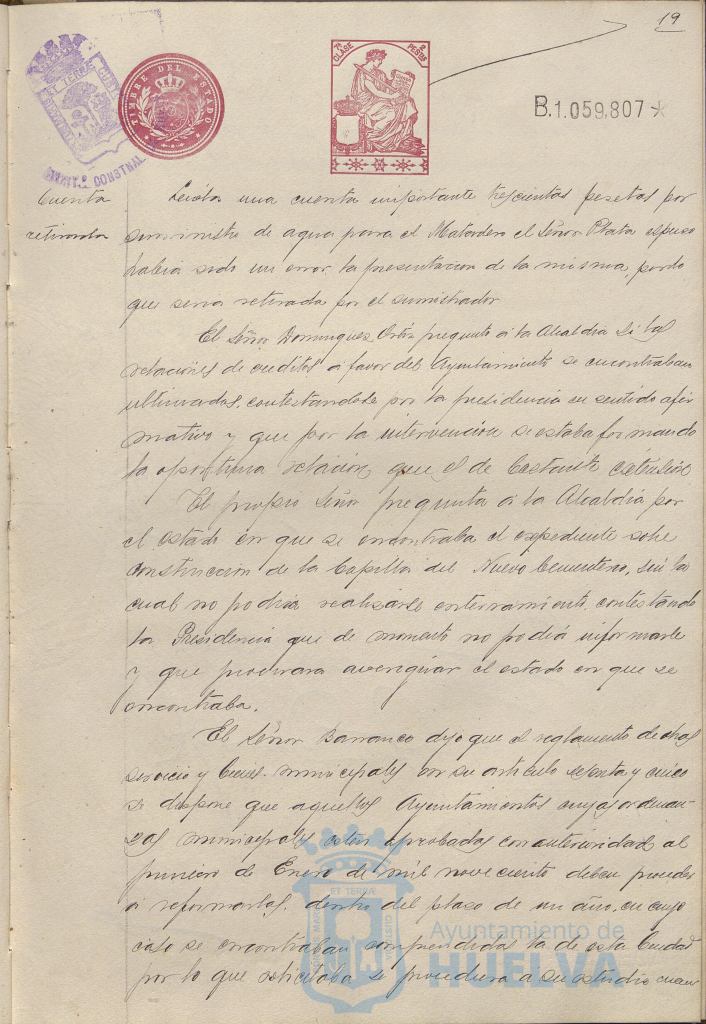 19
TIMBRE DEL ESTADO
7ª CLASE 2 PESTAS
B.1.059.807*
Cuenta
retirada
Leida una cuenta importante trescientas pesetas por
suministro de agua para el Matadero el Señor Plata expuso
habia sido un error la presentacion de la misma, por lo
que seria retirada por el suministrador
El Señor Dominguez Ortiz pregunto á la Alcaldia si las
relaciones de creditos á favor del Ayuntamiento se encontraban
ultimadas, contestandole por la presidencia en sentido afir
mativo y que por la intervencion se estaba formando
la oportuna relacion, que es de bastante extension
El propio Señor pregunta á la Alcaldia por
el estado en que se encontraba el expediente sobre
construccion de la Capilla del Nuevo Cementerio, sin la
cual no podria realizarse enterramiento, contestando
la Presidencia que de momento no podia informarle
y que procurara averiguar el estado en que se
encontraba.
El Señor Barranco dijo que el reglamento de obras
servicio y bienes municipales en su articulo sesenta y cinco
se dispone que aquellos Ayuntamientos cuyas ordenan-
zas municipales esten aprobadas con anterioridad al
primero de Enero de mil novecientos deben proceder
á reformarlas, dentro del plazo de un año, en cuyo
caso se encontraban comprendidas la de esta Ciudad
por lo que solicitaba se procediera a su estudio cuan
ET TERRÆ
Ayuntamiento de
HUELVA